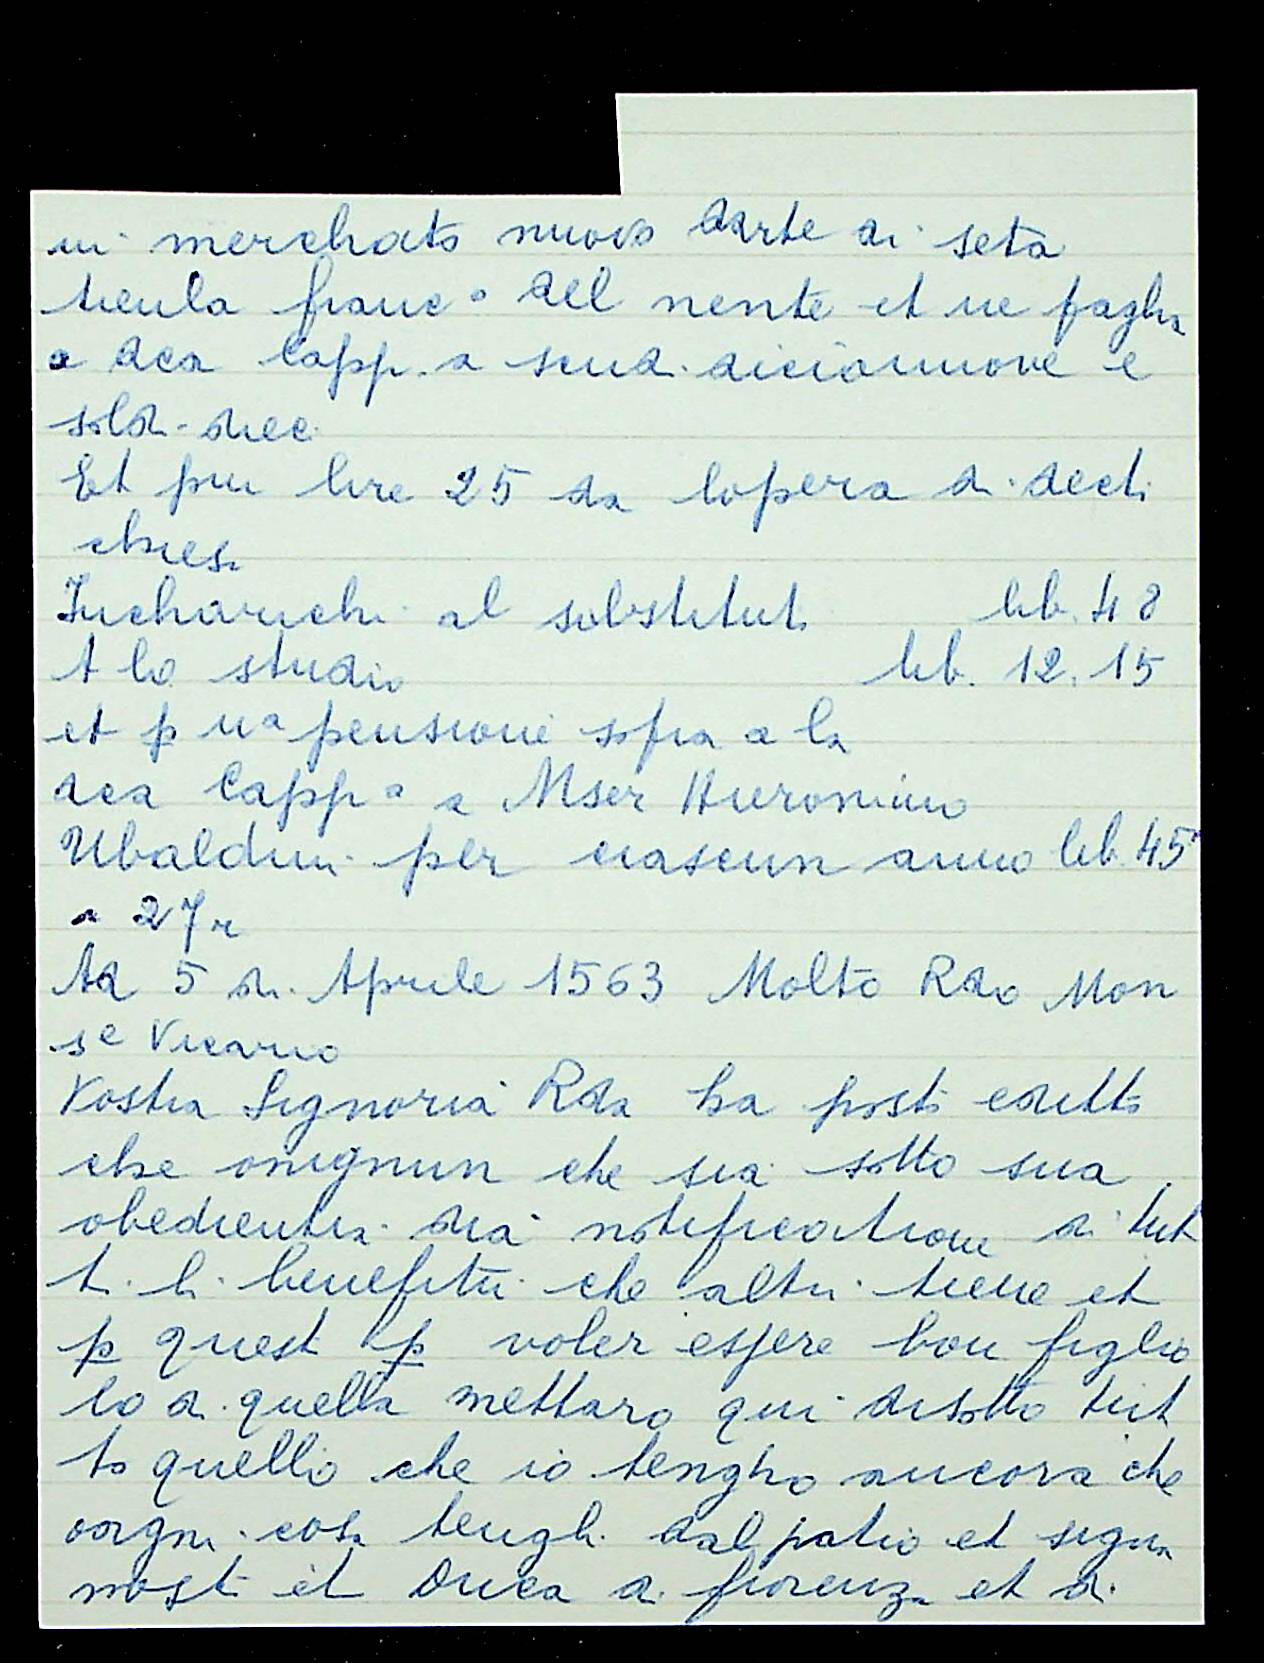 in merchato nuovo darte di seta
tienla franc° del nente et ne pagha
a dca Capp.a scud. dicianove e
soldi diec
Et piu lire 25 da lopera di decti
chiesi
Incharichi al substituti lib. 48
A lo studio lib. 12.15
et p na pensione sopra a la
dca Capp a a Mser Hieronimo
Ubaldini per ciascun anno lib. 45
a 27r
Ad 5 di Aprile 1563 Molto Rdo Mon
se Vicario
Vostra Signoria Rda ha posto editto
che onignun che sia sotto sua
obedientia dia notificatione di tut
ti li benefitii che altri tiene et
p questo p voler essere bon figlio
lo di quella mettaro qui disotto tut
to quello che io tengho ancora che
ongni cosa tenghi dal patio et signor
nosto il Duca di fiorenza et di